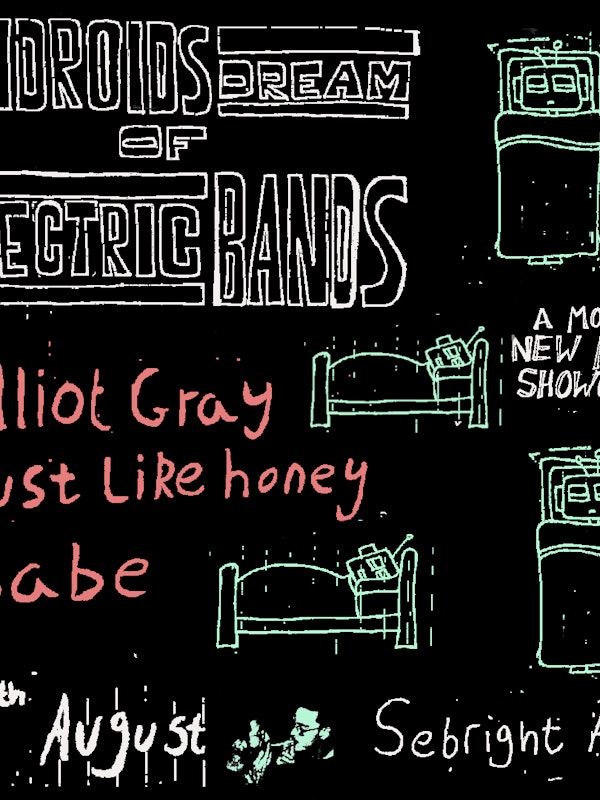 DROIDS DREAM
OF
ECTRIC BANDS
A MO
NEW
SHOW
lliot Gray
ust Like honey
abe
th August
Sebright A